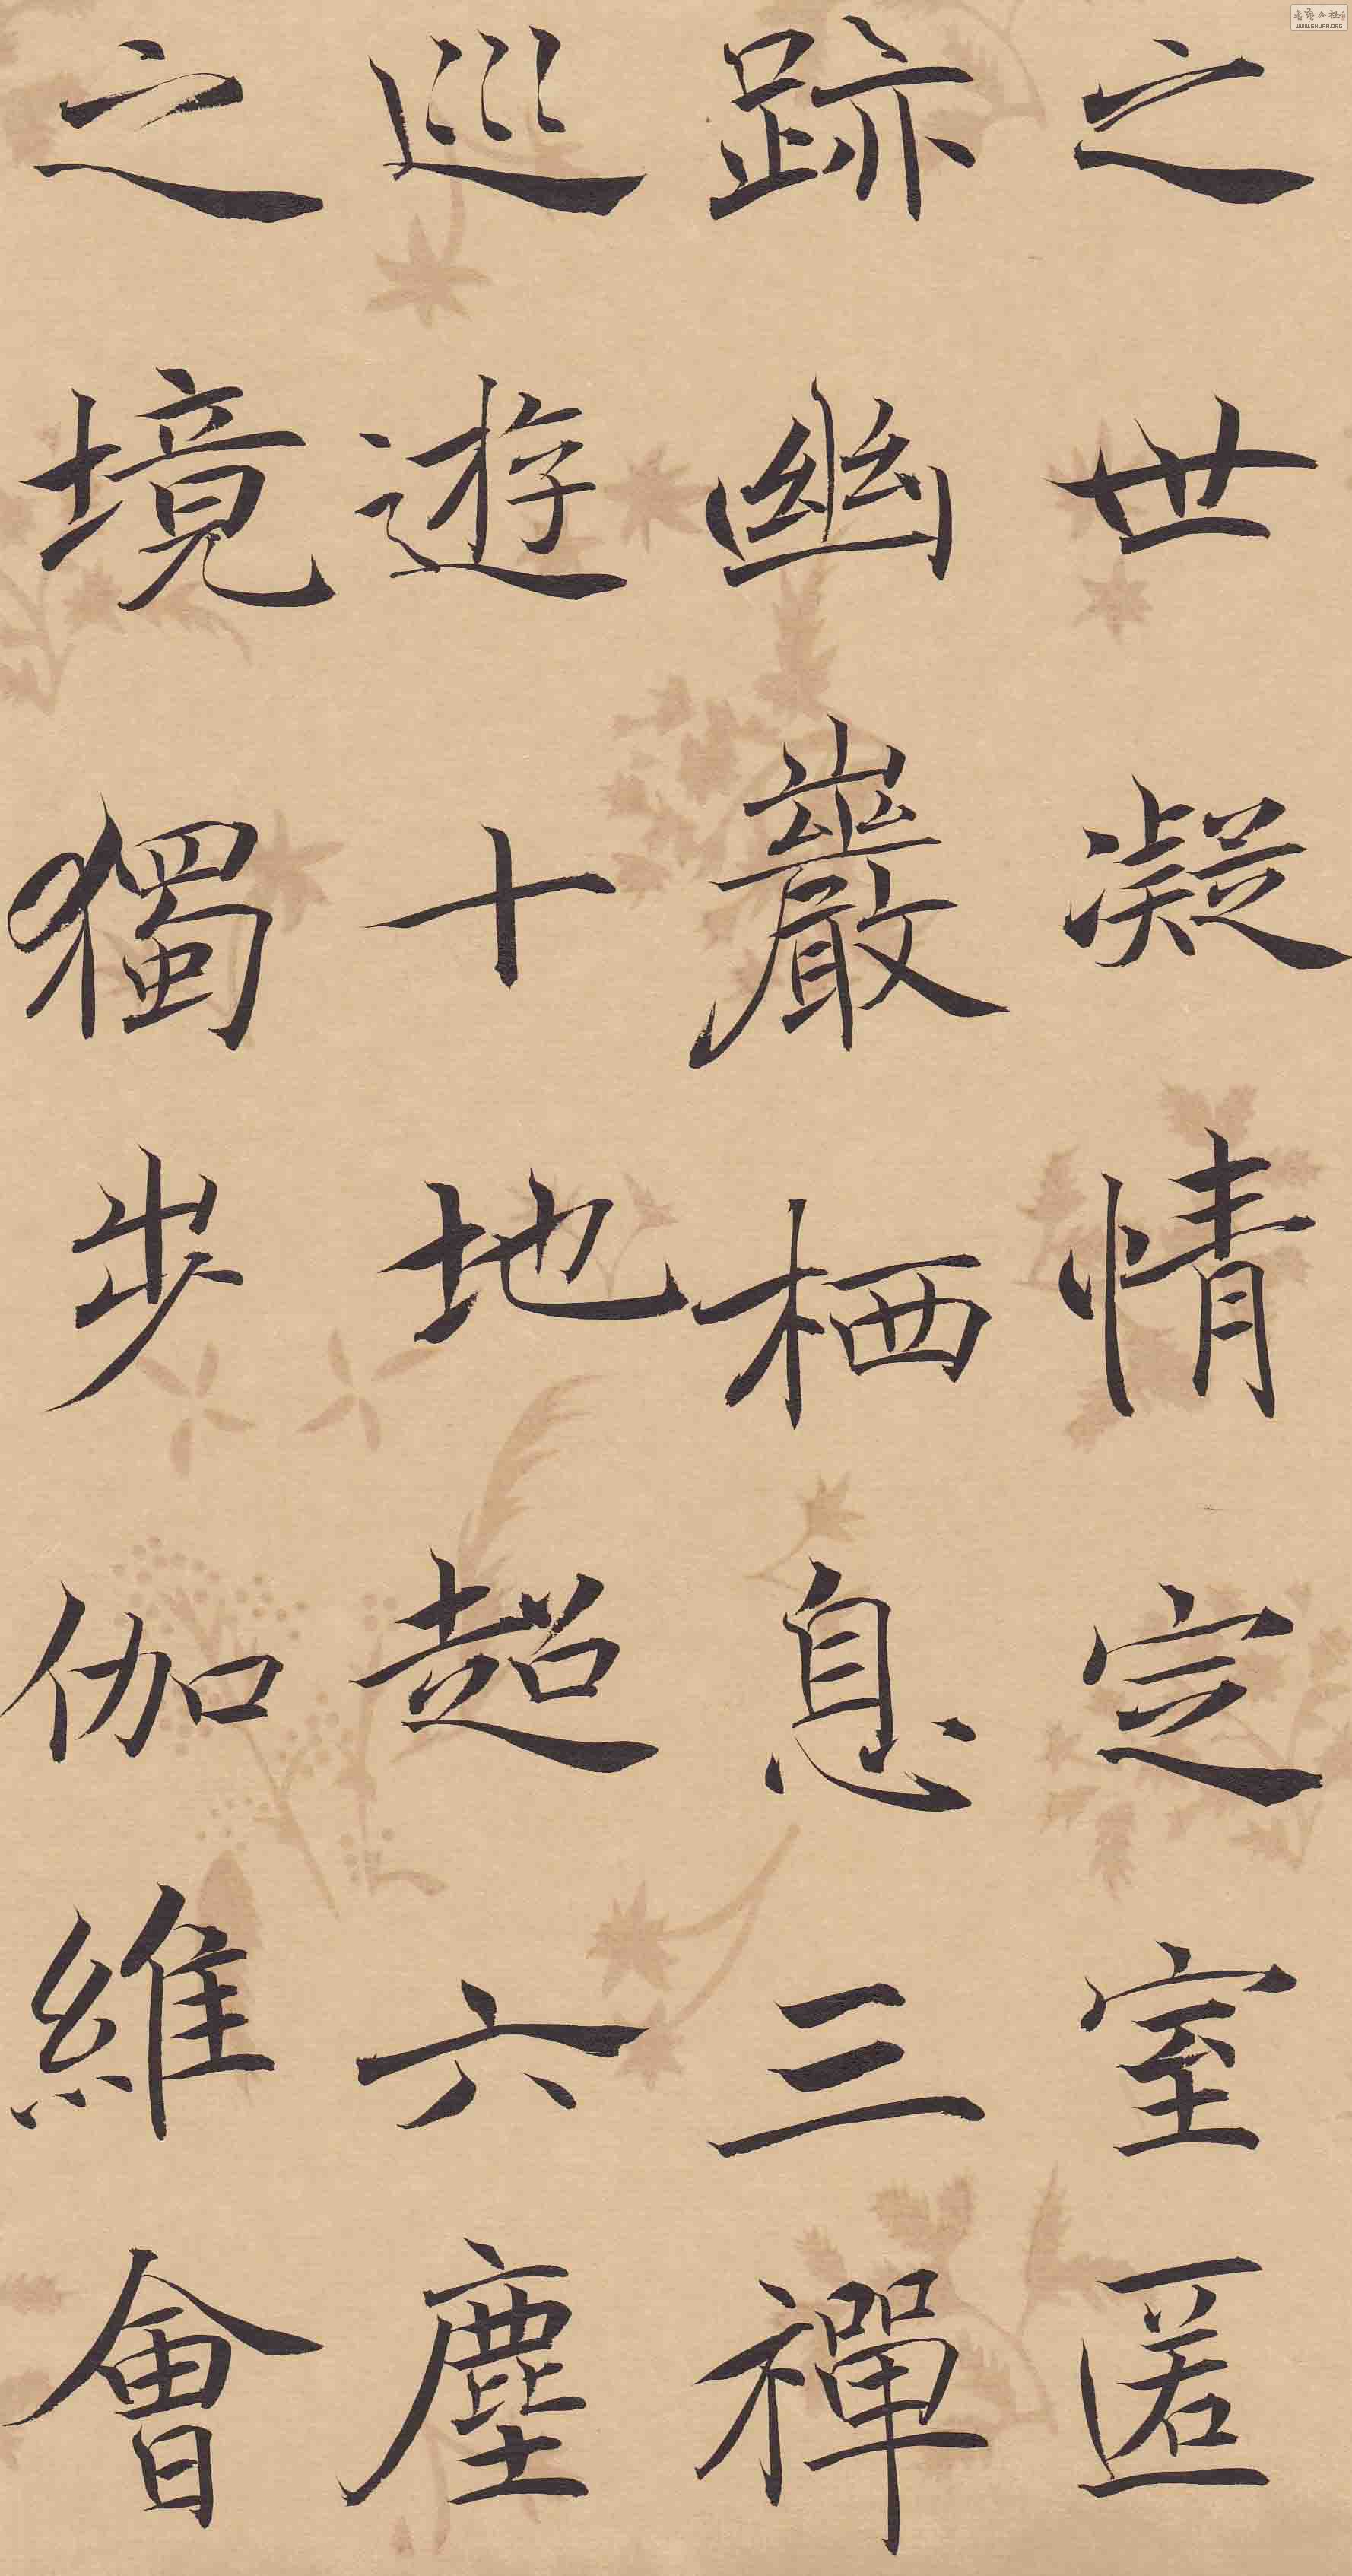 之世凝情定室匿
跡幽巖栖息三禪
巡遊十地超六塵
之境獨步伽維會
WWW.SHUFA.ORG